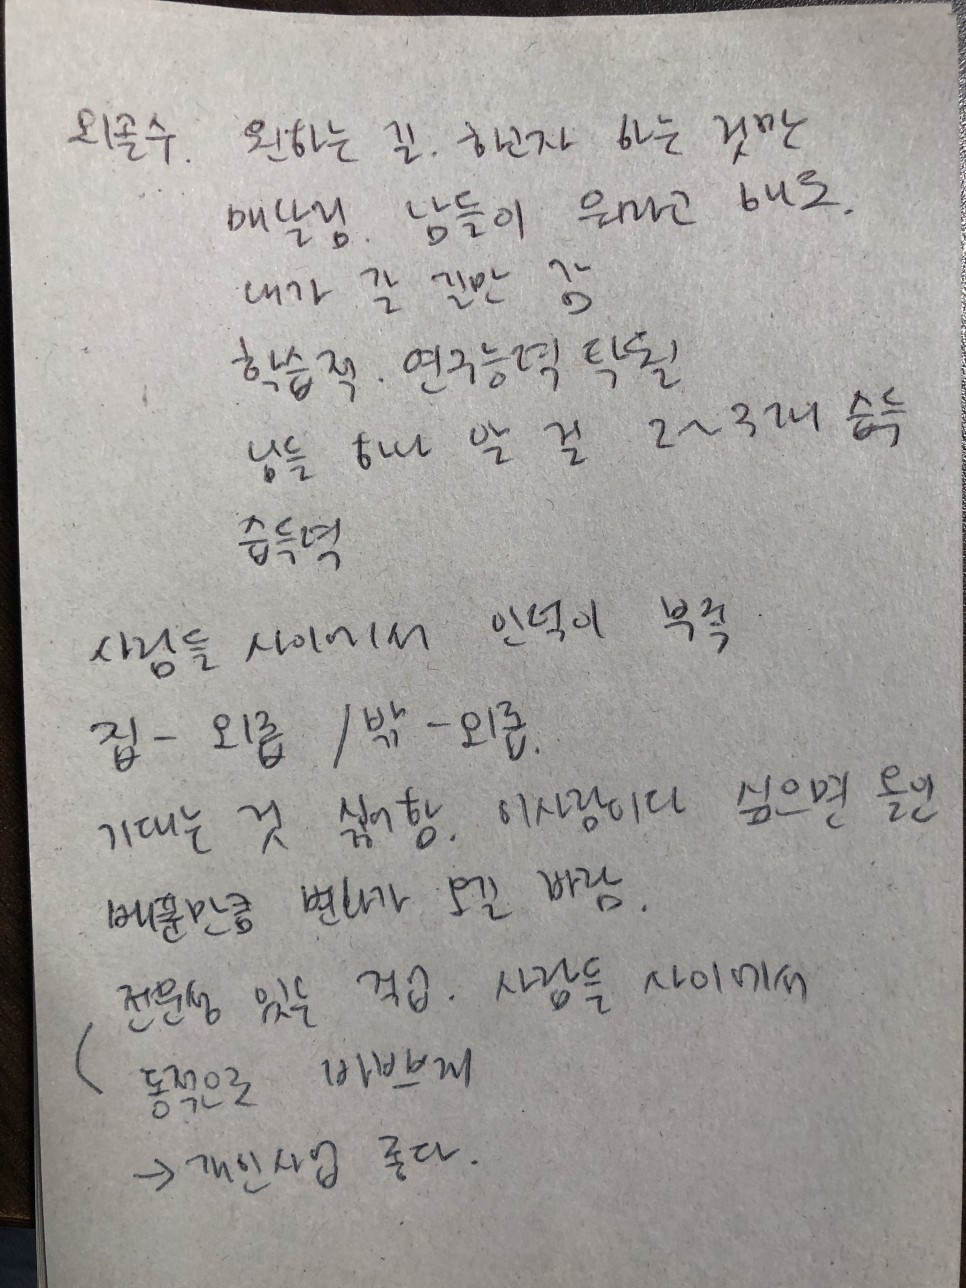 외골수. 원하는 길. 하고자 하는 것만
매달림. 남들이 뭐라고 해도.
내가 갈 길만 감
학습적. 연구능력 탁월
남들 하나 알 걸 2~3개 습득
습득력
사람들 사이에서 인덕이 부족
집 - 외롭 / 밖 - 외롭.
기대는 것 싫어함. 이사람이다 싶으면 올인
베푼만큼 변화가 오길 바람.
전문성 있는 직업. 사람들 사이에서
동적으로 바쁘게
→ 개인사업 좋다.